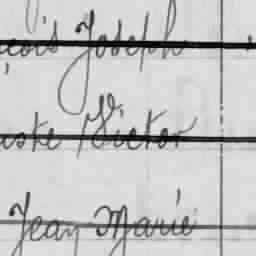 çois Joseph
uste Victor
Jean Marie